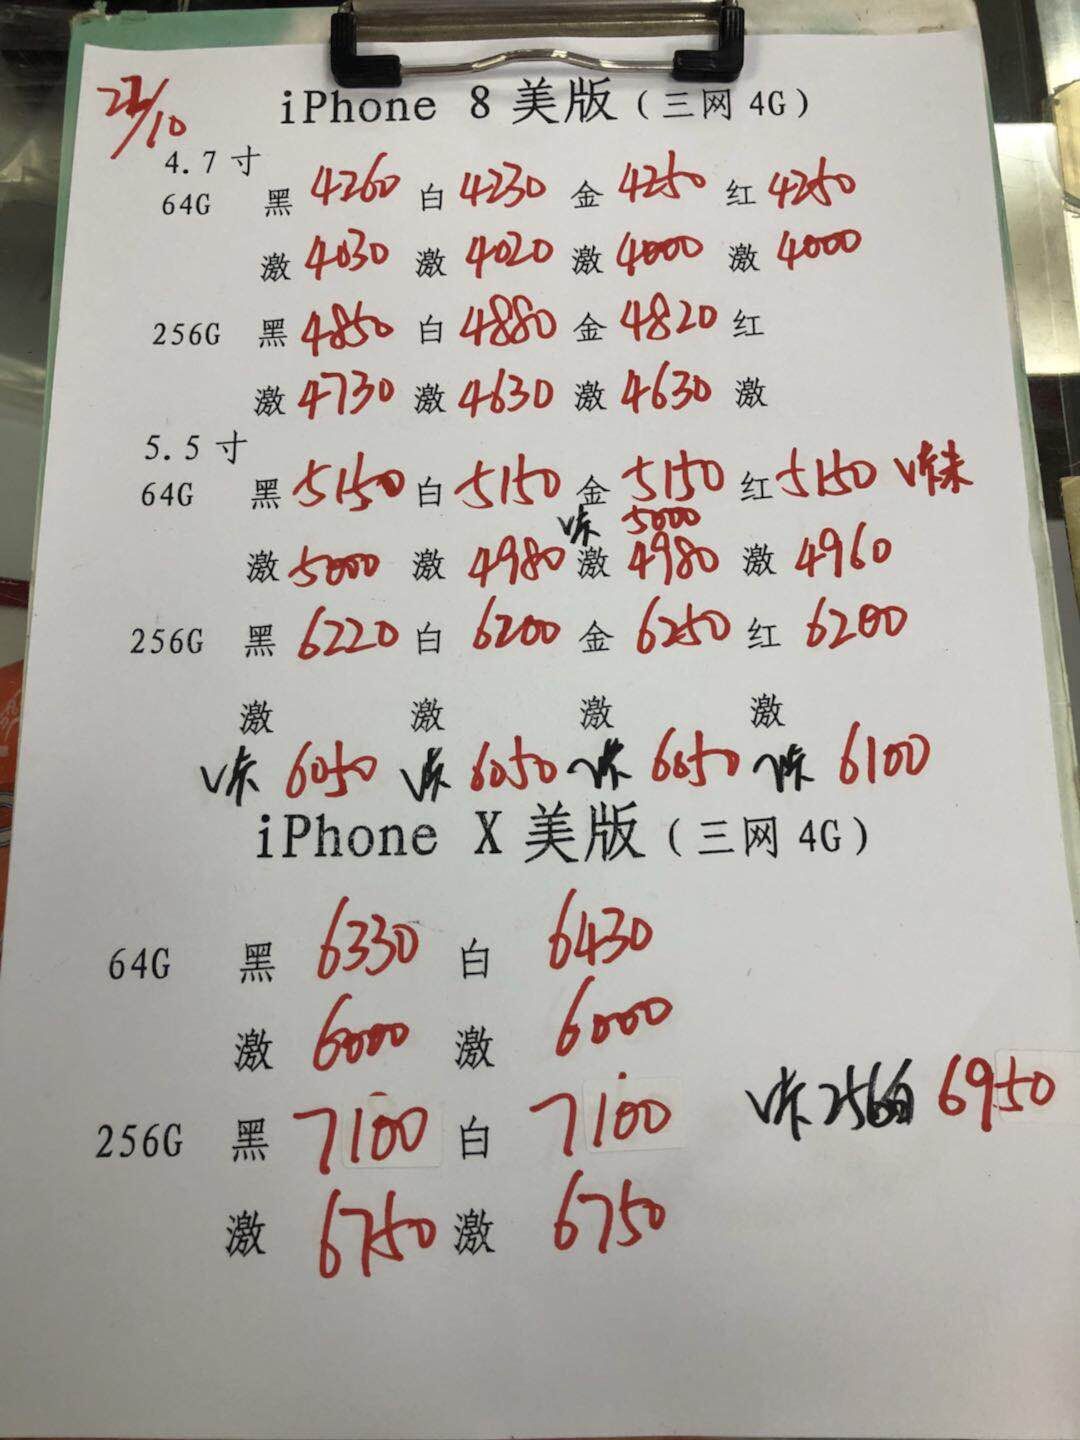 22/10
iPhone 8 美版(三网4G)
4.7寸
64G 黑 4260 白 4230 金 4250 红 4250
激 4030 激 4020 激 4000 激 4000
256G 黑 4850 白 4880 金 4820 红
激 4730 激 4630 激 4630 激
5.5寸
64G 黑 5150 白 5150 金 5150 红 5150
5000
激 5000 激 4980 激 4980 激 4960
256G 黑 6220 白 6200 金 6250 红 6200
激 激 激 激
V卡 6050 V卡 6050 V卡 6050 V卡 6100
iPhone X 美版(三网4G)
64G 黑 6330 白 6430
激 6000 激 6000
256G 黑 7100 白 7100 V卡 256G 6950
激 6750 激 6750